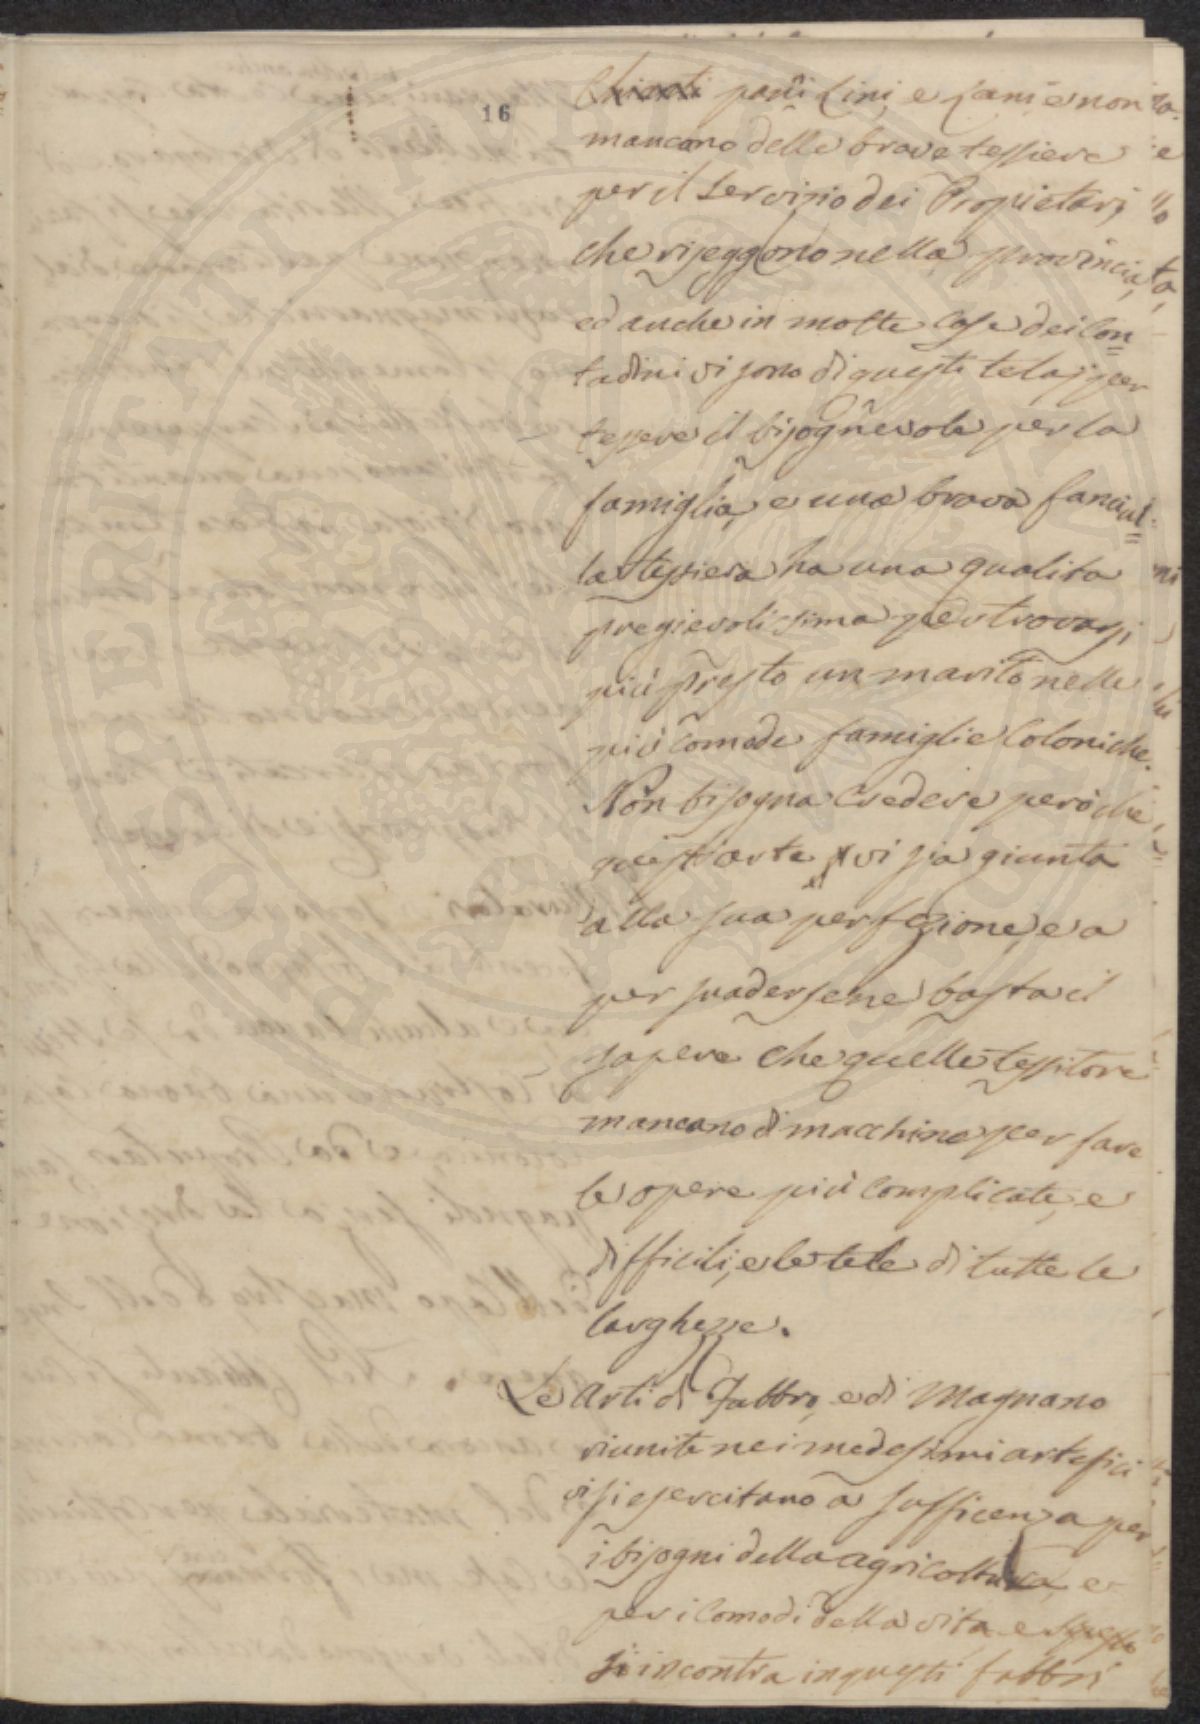 16
panni Lini, e Lani e non
mancano delle brave tessiere
per il servizio dei Proprietarj,
che risieggono nella provincia,
ed anche in molte Case dei Con=
tadini vi sono di questi telaj per
tessere il bisognevole per la
famiglia, e una brava fanciul=
la tessiera ha una qualita
pregievolissima per trovarsi
più presto un marito nelle
più comode famiglie Coloniche.
Non bisogna credere però che
quest'arte vi sia giunta
alla sua perfezione, e a
persuadersene basta il
sapere che quelle tessitore
mancano di macchine per fare
le opere più complicate, e
difficili, e le tele di tutte le
larghezze.
Le Arti di Fabbro, e di Magnano
riunite nei medesimi artefici
vi si esercitano a sufficenza per
i bisogni della agricoltura, e
per i Comodi della vita, e spesso
si incontra in questi fabbri
PROSPERITATI PUBLICAE